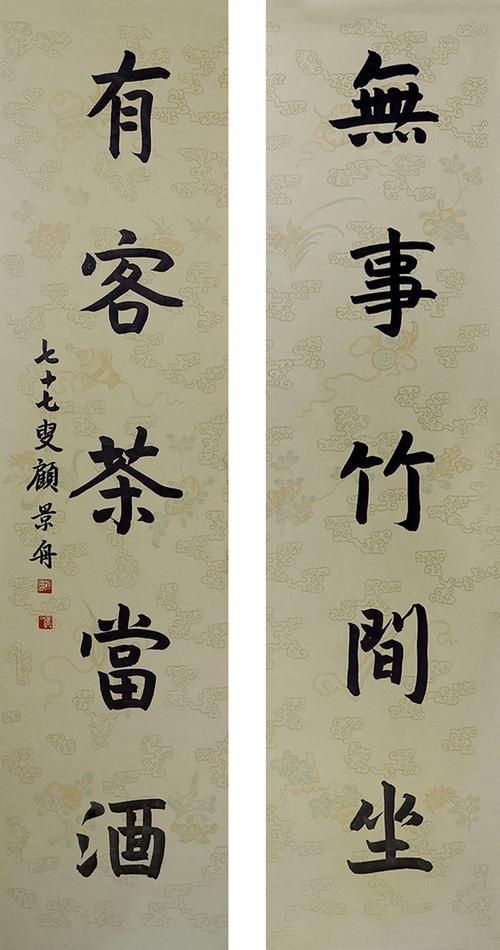 無事竹間坐
有客茶當酒
七十七叟顧景舟